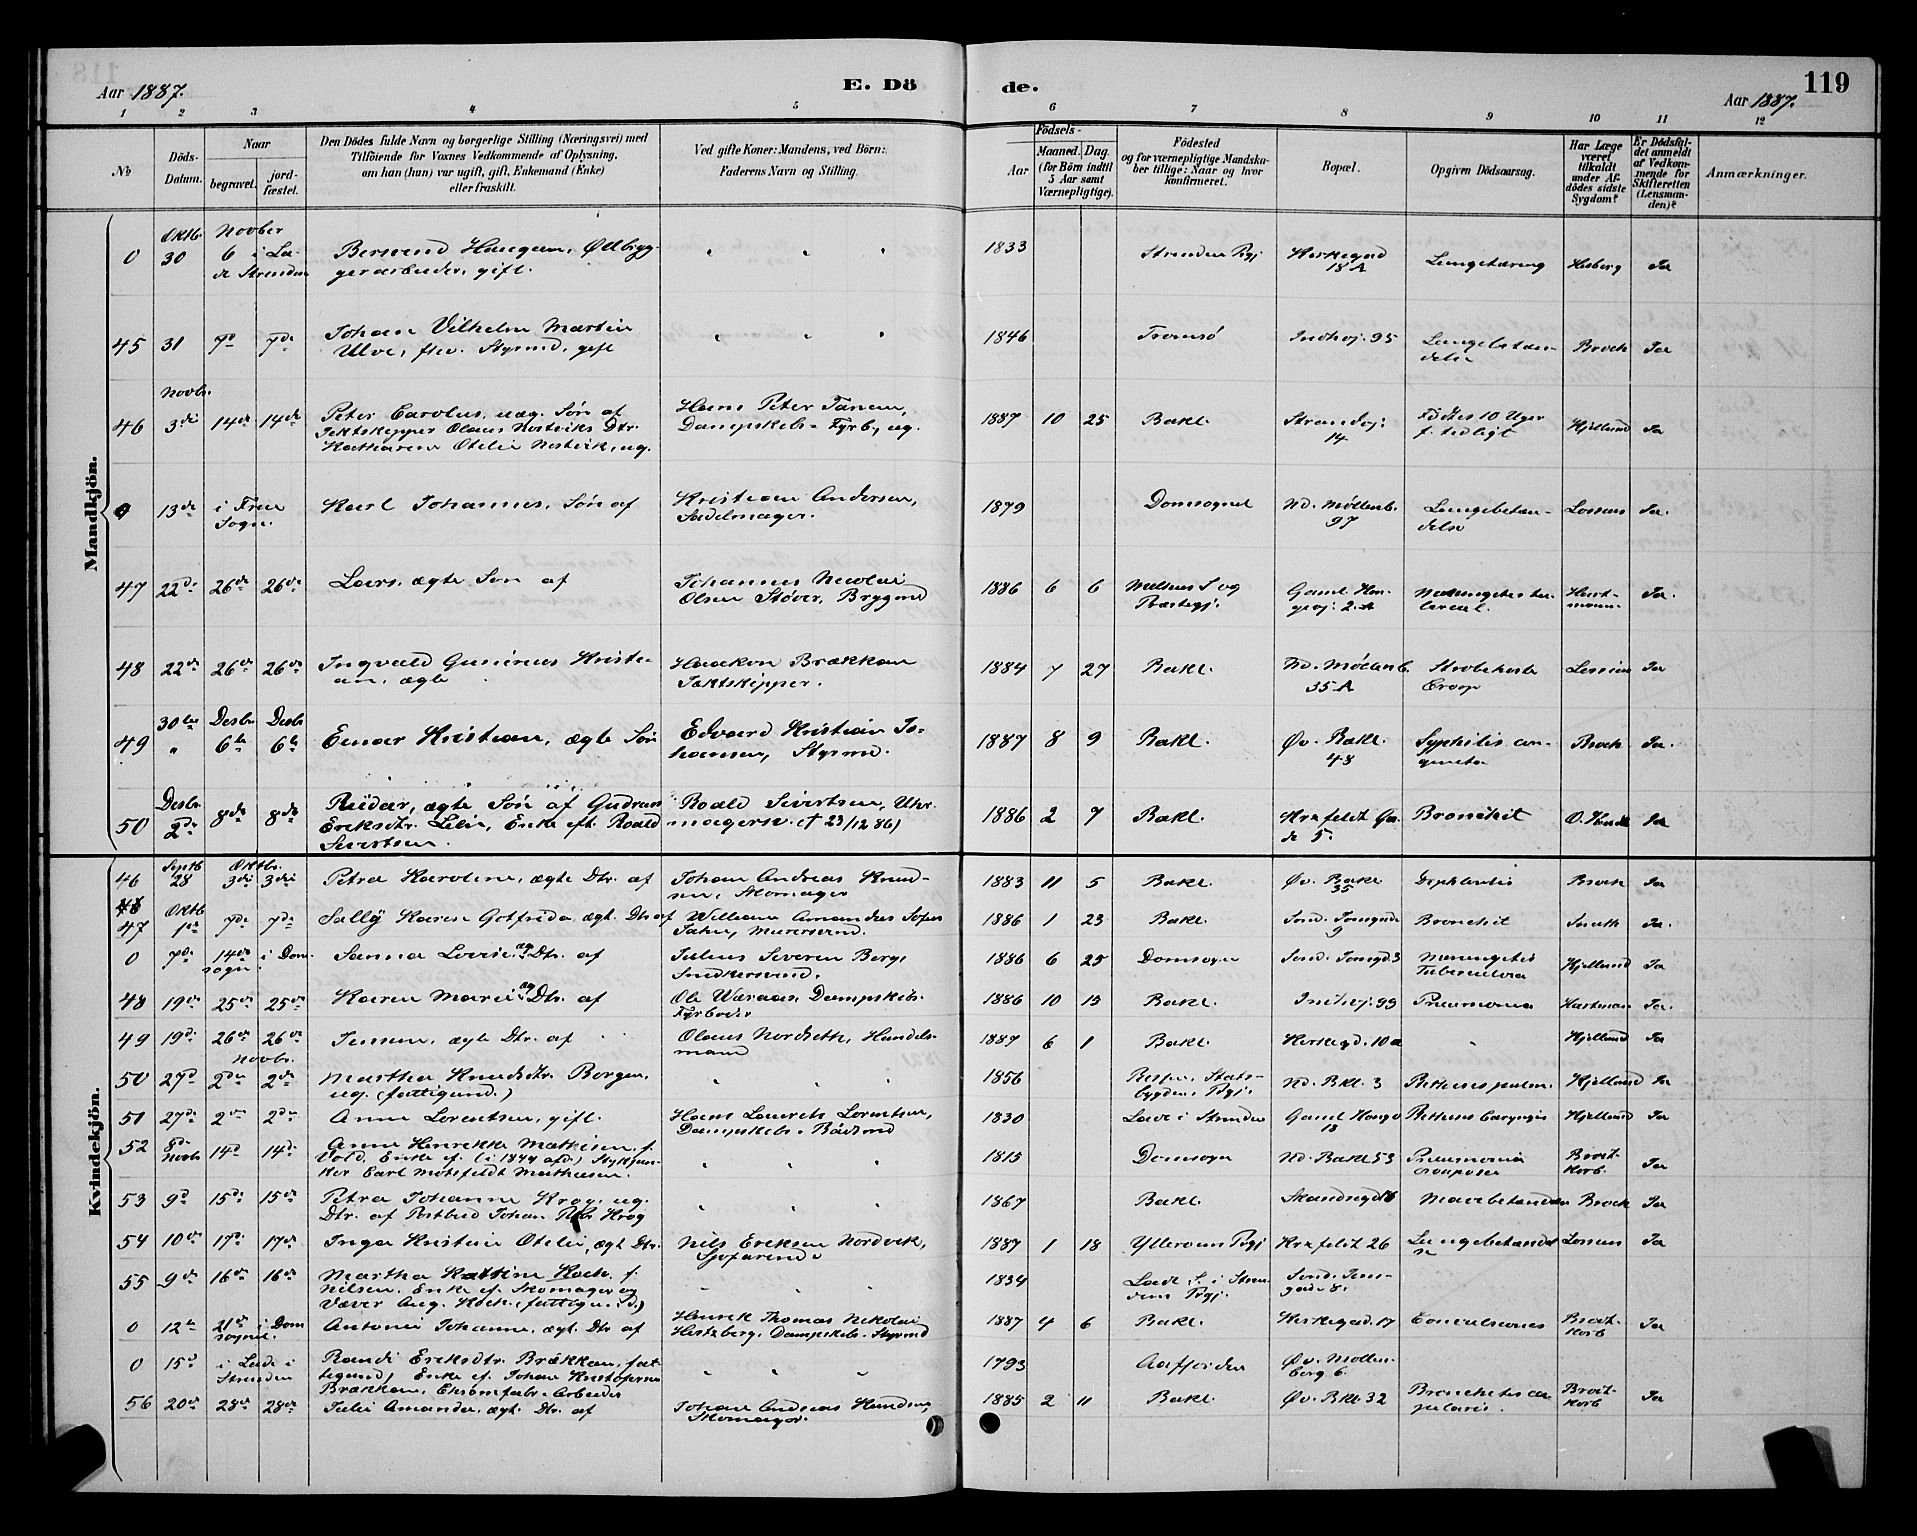 Aar 1887. E. Dö de. Aar 1887. 119
1 2 3 4 5 6 7 8 9 10 11 12
No
Döds-Datum.
Naar
begravet.
jord-fæstet.
Den Dödes fulde Navn og borgerlige Stilling (Næringsvei) med
Tilföiende for Voxnes Vedkommende af Oplysning,
om han (hun) var ugift, gift, Enkemand (Enke)
eller fraskilt.
Ved gifte Koner: Mandens, ved Börn:
Faderens Navn og Stilling.
Födsels-
Aar
Maaned. Dag.
(for Börn indtil
5 Aar samt
Værnepligtige).
Födested
og for værnepligtige Mandska-
ber tillige: Naar og hvor
konfirmeret.
Bopæl.
Opgiven Dödsaarsag.
Har Læge
været
tilkaldt
under Af-
dødes sidste
Sygdom?
Er Dödsfal-
det anmeldt
af Vedkom-
mende for
Skifteretten
(Lensman-
den)?
Anmærkninger.
Mandkjön.
0 Oktb. 30 Novber 6 i La-
de Strinden
Bernend Haugum, Ølbryg-
geriarbeider, gift.
" " "
1833 Strinden Pgj Kirkegad 18 A Lungetæring Hesberg Ja
45 31 7d 7de
Johan Vilhelm Martin
Ulve, fhv. Styrmd, gift
" " "
1846 Tromsø Indhvj. 95 Lungebetæn-
delse Broch Ja
46 Novbr. 3die 14de 14de
Peter Carolus, uæg. Søn af
Jektskipper Olaus Nostviks Dtr.
Katharina Otelie Nostvik, ug.
Hans Peter Tanem,
Dampskibs-Fyrb, ug.
1887 10 25 Bakl. Strandvj: 14 Fødtes 10 Uger
f. tidligt Hjellund Ja
0 13de i Frue
Sogn.
Karl Johannes, Søn af
Kristian Andersen,
Sadelmager.
1879 Domsognet Nd. Møllenb. 97 Lungebetæn-
delse Lossius Ja.
47 22de 26de 26de
Lars, ægte Søn af
Johannes Nicolai
Olsen Støver, Brygmd
1886 6 6 Melhus S og
Præstegj. Gaml. Kon-
gevj: 2 A Hart-
mann Ja.
48 22de 26de 26de
Ingvald Gunerius Kristi-
an, ægte
Haakon Brækkan
Jæktskipper.
1884 7 27 Bakl. Nd. Møllenb.
35 A Strubehoste
Croup Lossius Ja
49 30te " Desbr 6te Desbr 6te
Einar Kristian, ægte Søn
Edvard Kristian Jo-
hansen, Styrmd.
1887 8 9 Bakl. Øv. Bakl.
48 Syphilis con-
genita Broch Ja.
50 Desbr 2de 8de 8de
Reidar, ægte Søn af Gudrun
Eriksdtr. Lilie, Enke eft. Roald
Sivertsen.
Roald Sivertsen, Uhr-
magersv. († 23/12 86)
1886 2 7 Bakl. Krefeldt Ga-
de 5. Bronchit Ja
Kvindekjön.
46 Septb 28 Oktbr. 3die 3die
Petra Karoline, ægte Dtr. af
Johan Andreas Knud-
sen, Skomager
1883 11 5 Bakl. Øv. Bakl
35 Broch Ja
47 Oktb 1ste 7de 7de
Sally Karen Gotfrida, ægt. Dtr af
William Amandus Sofus
Jahn, Murersvend.
1886 1 23 Bakl. Innh. Tomtgade
9 Bronchit Ja.
0 7de 14de i Dom-
sogn.
Sanna Lovise, æg Dtr. af
Julius Severin Berg,
Snedkersvend.
1886 6 25 Domsogn Meningitis
Tuberculosa Hjellund Ja
48 19de 25de 25de
Karen Marie, æg Dtr. af
Ole Wæraas, Dampskibs-
Fyrbøder
1886 10 13 Bakl. Indhvj. 99 Pneumonia Hartman Ja.
49 19de 26de 26de
Jensine, ægte Dtr. af
Olaus Nordseth, Handels-
mand
1887 6 1 Bakl. Kirkegd. 10 a " Hjellund Ja
50 27d Novbr. 2den 2de
Martha Knudsdtr. Borgen,
ug. (fattigund.)
" " "
1856 Nd. Bkl. 3 Hjellund Ja
51 27de 2de 2den
Anne Lorentsen, gift.
Hans Laurits Lorentsen,
Dampskibs-Bådsmd
1830 Lade i Strinden Gaml Kongv
13 Hjellund Ja
52 8de Novb 14d 14de
Anne Henrikke Mathisen f.
Vold, Enke ef. (i 1844 afd)
Carl Motzfeldt Mathiesen.
" " "
1815 Domsogn Nd. Bakl 53 Pneumonia
crouposa Broit-
korb Ja
53 9d 15de 15de
Petra Johanne Krog, ug.
Dtr. af Postbud Johan Krog
" " "
1867 Bakl. Broch Ja
54 10de 17de 17de
Inga Kristine Otelie, ægt Dtr.
Nils Eriksen Nordvik,
Sjøfarende
1887 1 18 Ytterøens Pgj Krefeldt 26 Lungebetændel
se Lossius Ja
55 9de 16de 16de
Martha Katrine Koch, f.
Nilsen, Enke ef. Skomager og
Væver Aug. Koch. (fattigund.)
" " "
1834 Lade S. i Strin-
dens Pgj.
0 12te 21de i Dom-
sognet.
Antonie Johanne, ægt. Dtr af
Henrik Thomas Nikolai
Hertzberg, Dampskibs-Styrmd
1887 4 6 Bakl. Kirkegad. 17 Convulsiones Broit-
korb Ja
0 15d i Lade i
Strinden
Randi Eriksdtr. Brækkan, fat-
tigund, Enke ef. Johan Kristofersen
Brækkan,
" " "
1793 Aafjorden Øv. Møllen-
berg 6.
56 20de 28de 28de
Julie Amanda, ægt. Dtr. af
Johan Andreas Knudsen,
Skomager.
1885 2 11 Bakl. Øv. Bkl. 32 Bronchitis ca-
pularis. Broit-
korb Ja